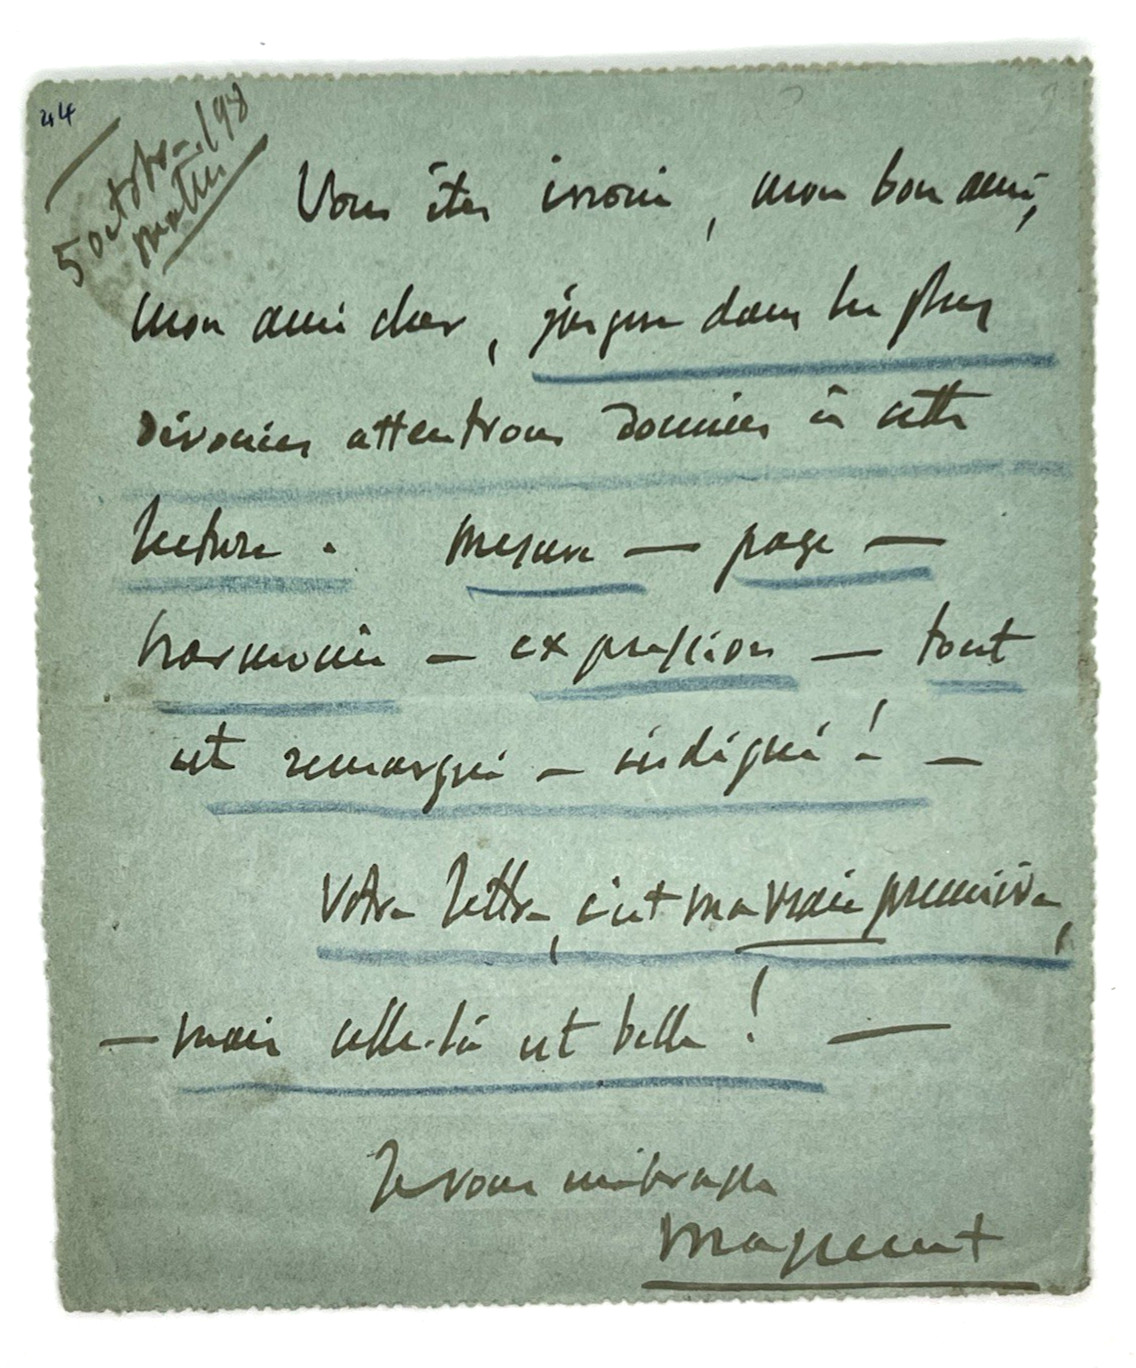 44
5 octobre /98
matin
Vous êtes inouï, mon bon ami,
mon ami cher, jusque dans les plus
dévouées attentions données à cette
lecture. mesure — page —
harmonie — expression — tout
est remarqué — indiqué ! —
Votre lettre, c'est ma vraie première,
— mais celle-là est belle ! —
Je vous embrasse
Massenet